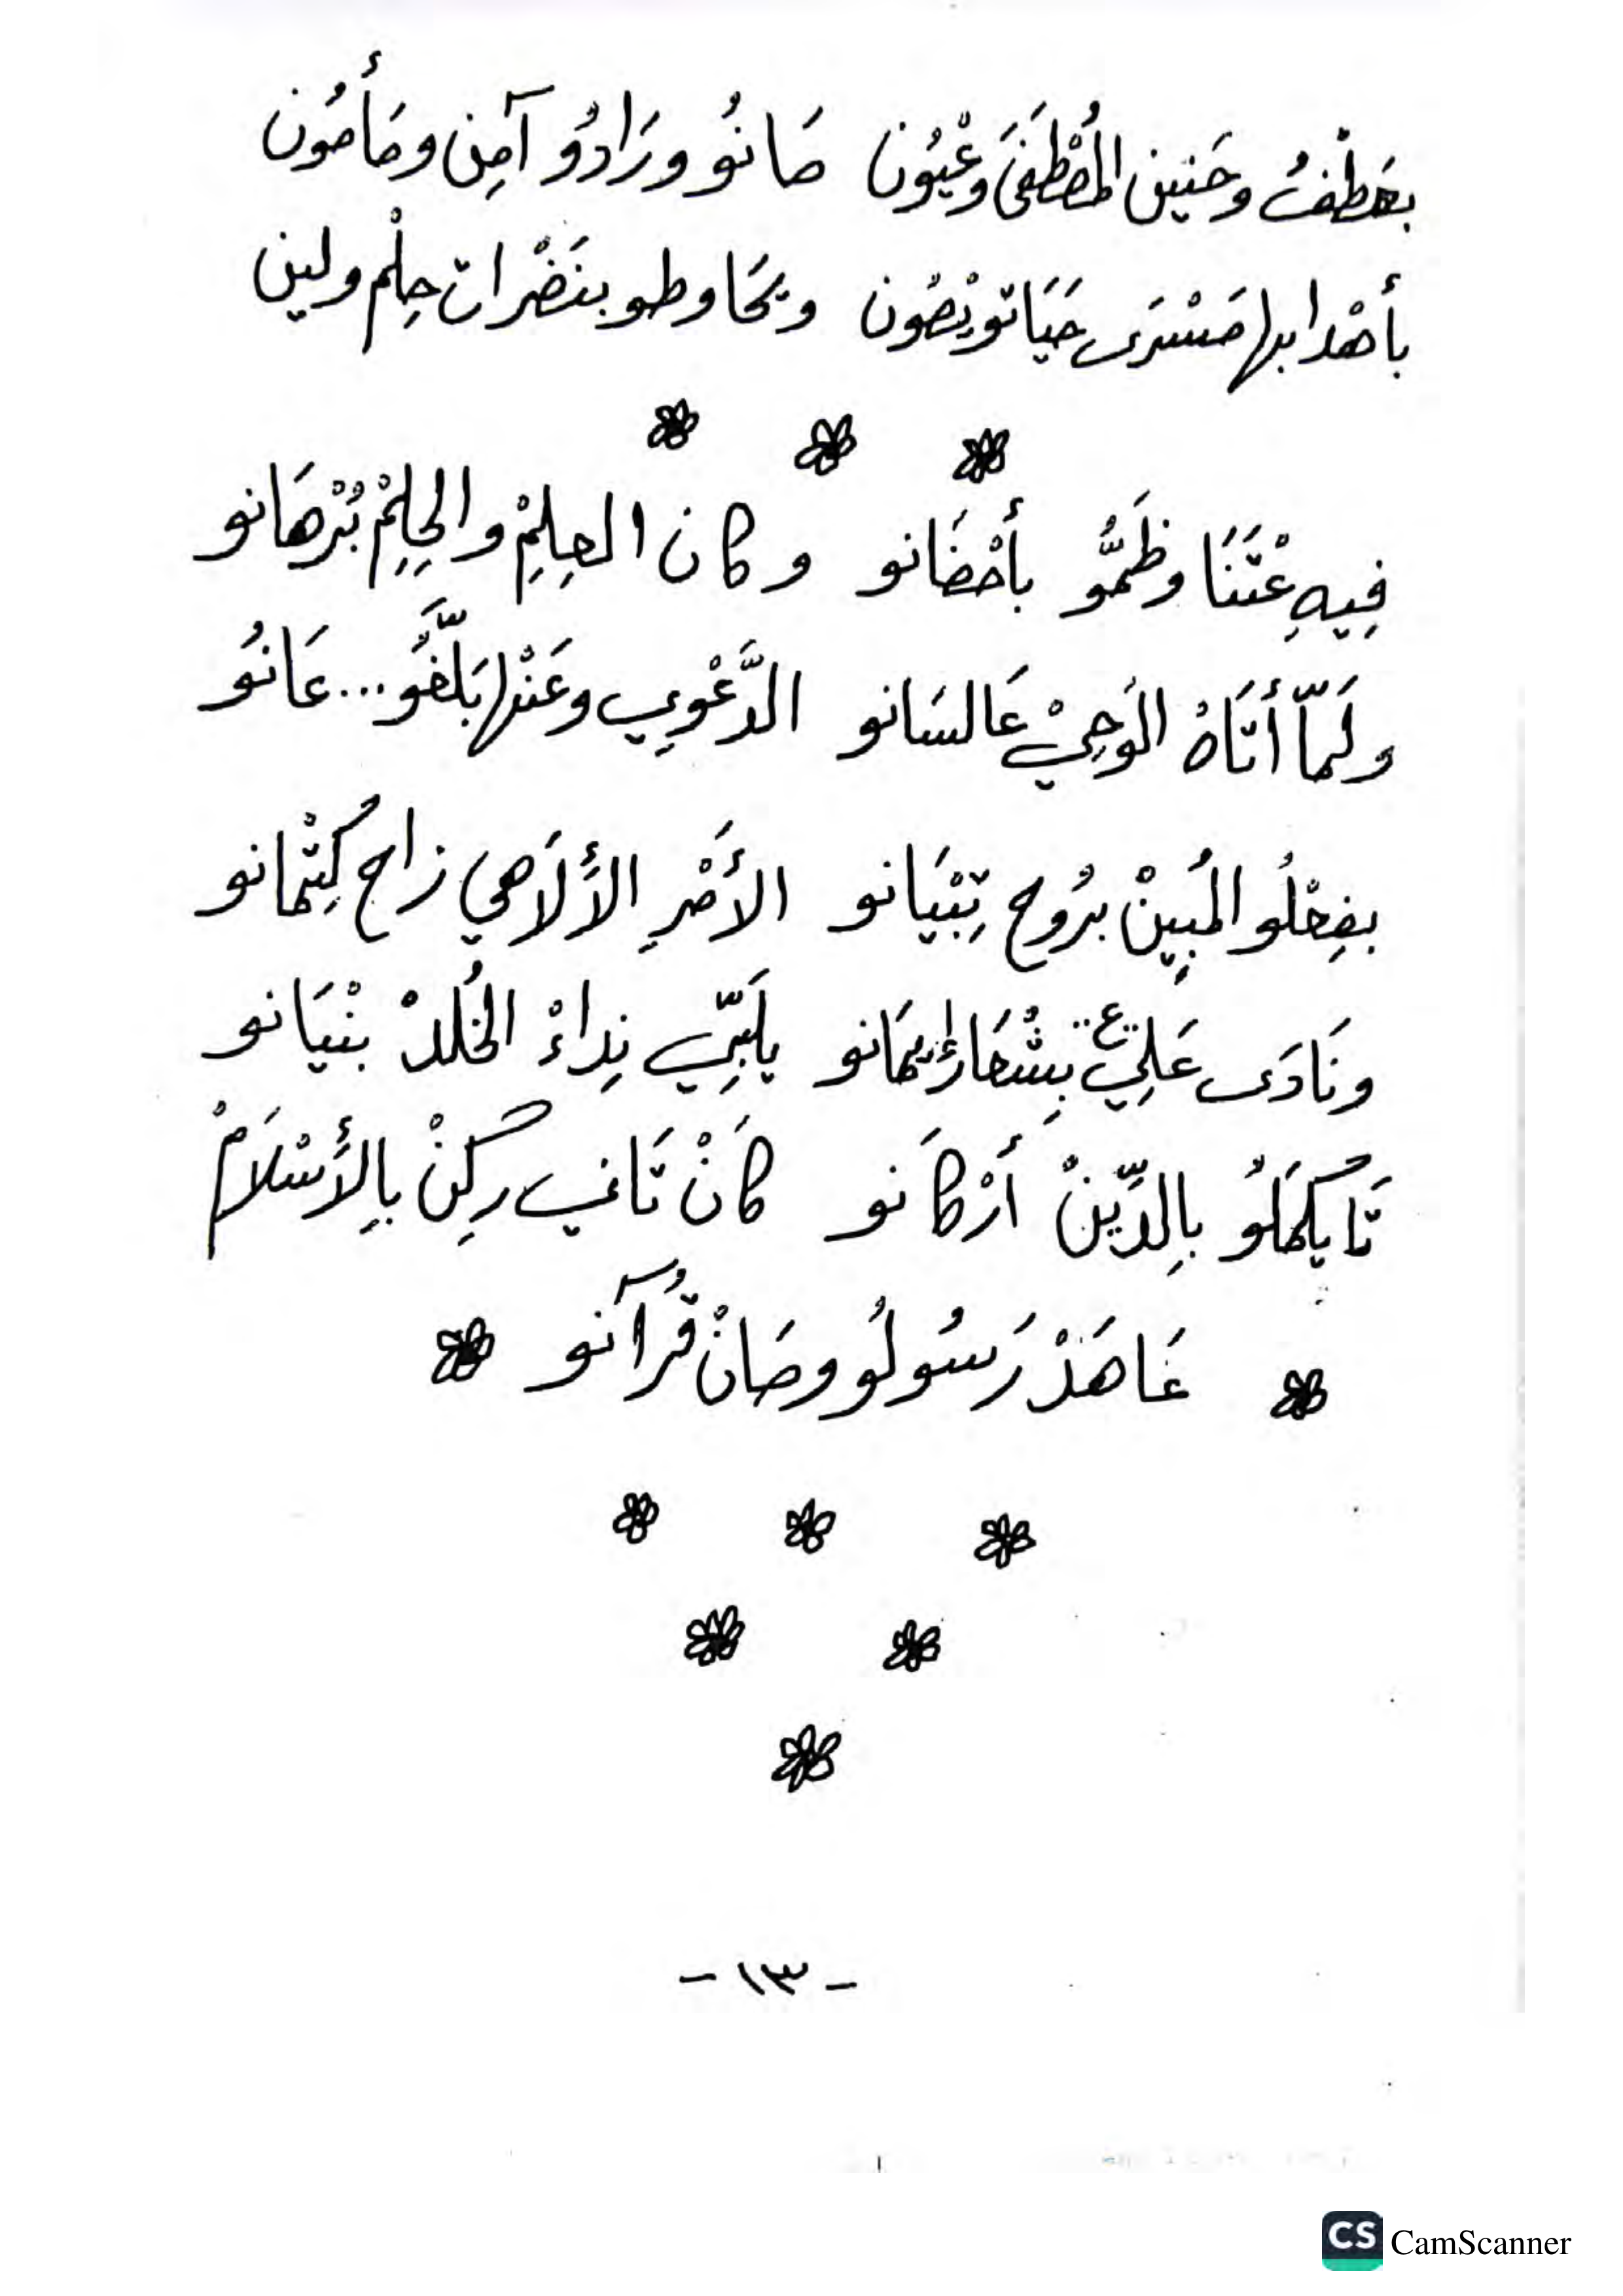 بعَطْفْ وحَنين المُصْطَفَى وعْيُون صَانُو ورَادُو آمِن ومَأمُون
بأهْدابها مَسْرَى حَيَاتو يْصُون ويحَاوطو بنَضْرات حِلْم ولين
فِيهِ عْتَنَا وظَمُّو بأحْضَانو وكان العِلِمْ والحِلِمْ بُرْهَانو
ولَمّا أتَاهْ الوَحِيْ عَالسَانو الدَّعْوِي وعَنْها بَلَّغُو... عَانُو
بفِعْلُو المُبِينْ برُوح تِبْيَانو الأمْرِ الألَاهِي زاح كِتْمانو
ونَادَى عَلِيْ ع بِشْعَار إيمَانو يلَبِّي نِداءْ الخُلدْ بنْيَانو
تَا يكْمَلُو بالدِّينْ أرْكَانو كَانْ تَاني رِكِنْ بالأسْلَامْ
عَاهَدْ رَسُولُو وصَانْ قُرآنو
- ١٣ -
CS CamScanner